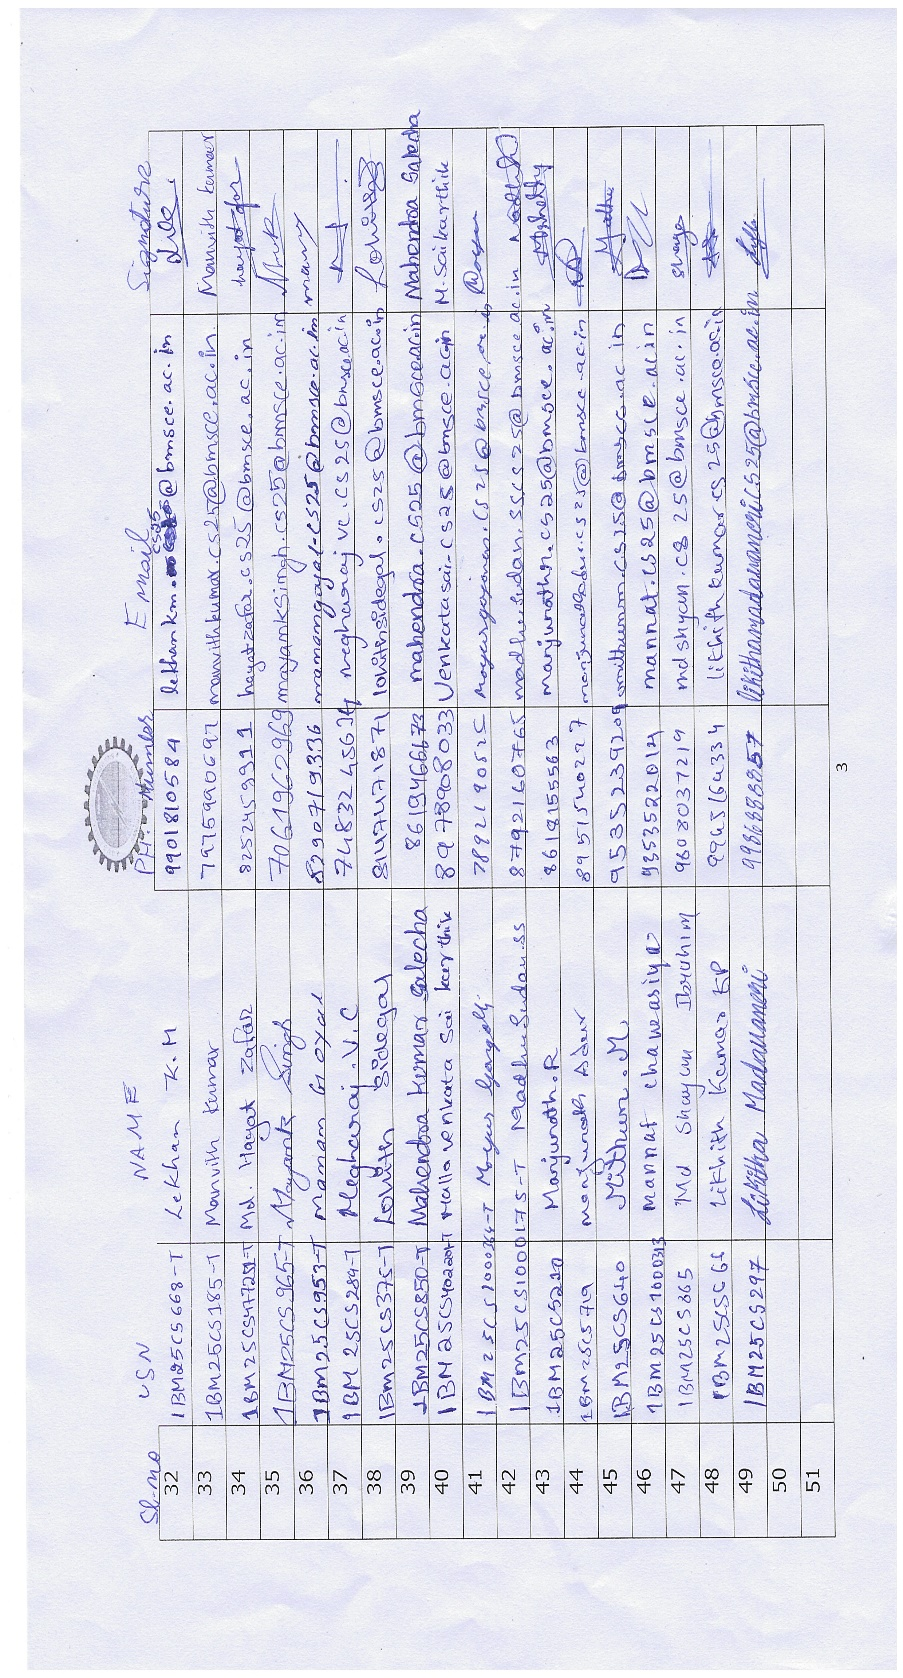 Sl.no USN NAME PH. Number Email Signature
32 1BM25CS668-T Lekhan K.M 9901810584 lekhankm.cs25@bmsce.ac.in
33 1BM25CS185-T Manvith Kumar 7975990697 manvithkumar.cs25@bmsce.ac.in Manvith Kumar
34 1BM25CS477259-T Md. Hayat Zafar 8252459911 hayatzafar.cs25@bmsce.ac.in hayatzafar
35 1BM25CS965-T Mayank Singh 7061962969 mayanksingh.cs25@bmsce.ac.in
36 1BM25CS953-T Manam Goyal 8290719336 manamgoyal.cs25@bmsce.ac.in
37 1BM25CS284-T Megharaj.V.C 7483245634 megharajvc.cs25@bmsce.ac.in
38 1BM25CS375-T Lohith Sidegal 8147471871 lohithsidegal.cs25@bmsce.ac.in
39 1BM25CS850-T Mahendra Kumar Salecha 8619466673 mahendra.cs25@bmsce.ac.in Mahendra Salecha
40 1BM25CS402204-T Malla Venkata Sai Karthik 8978908033 Venkatasai.cs25@bmsce.ac.in M. Sai Karthik
41 1BM25CS100364-T Mayur 7892190525
42 1BM25CS1000175-T Madhu Sudan.SS 8792160765 madhusudan.SSCS25@bmsce.ac.in
43 1BM25CS210 Manjunath.R 861815563 manjunathr.cs25@bmsce.ac.in
44 1BM25CS579 manjunath Adur 8951540227
45 1BM25CS640 Mithun.M 9535239209 mithunm.cs25@bmsce.ac.in
46 1BM25CS1000313 mannat chawasiya 9353522014 mannat.cs25@bmsce.ac.in
47 1BM25CS865 Md Shayan Ibrahim 9608037219 mdshyan.cs25@bmsce.ac.in
48 Likhith Kumar EP likhithkumar.cs25@bmsce.ac.in
49 1BM25CS297 Likitha Madamaneri likithamadamaneri.CS25@bmsce.ac.in
50
51
3